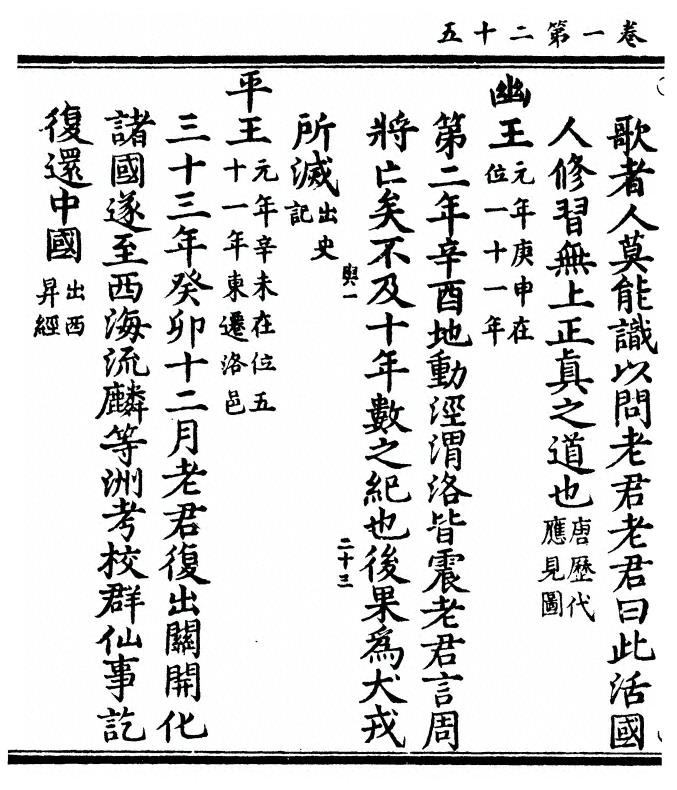 五十二第一卷
歌者人莫能識以問老君老君曰此活國
人修習無上正真之道也唐歷代應見圖
幽王元年庚申在位一十一年
第二年辛酉地動涇渭洛皆震老君言周
將亡矣不及十年數之紀也後果為犬戎
輿一
二十三
所滅出史記
平王元年辛未在位五十一年東遷洛邑
三十三年癸卯十二月老君復出關開化
諸國遂至西海流麟等洲考校群仙事訖
復還中國出西昇經